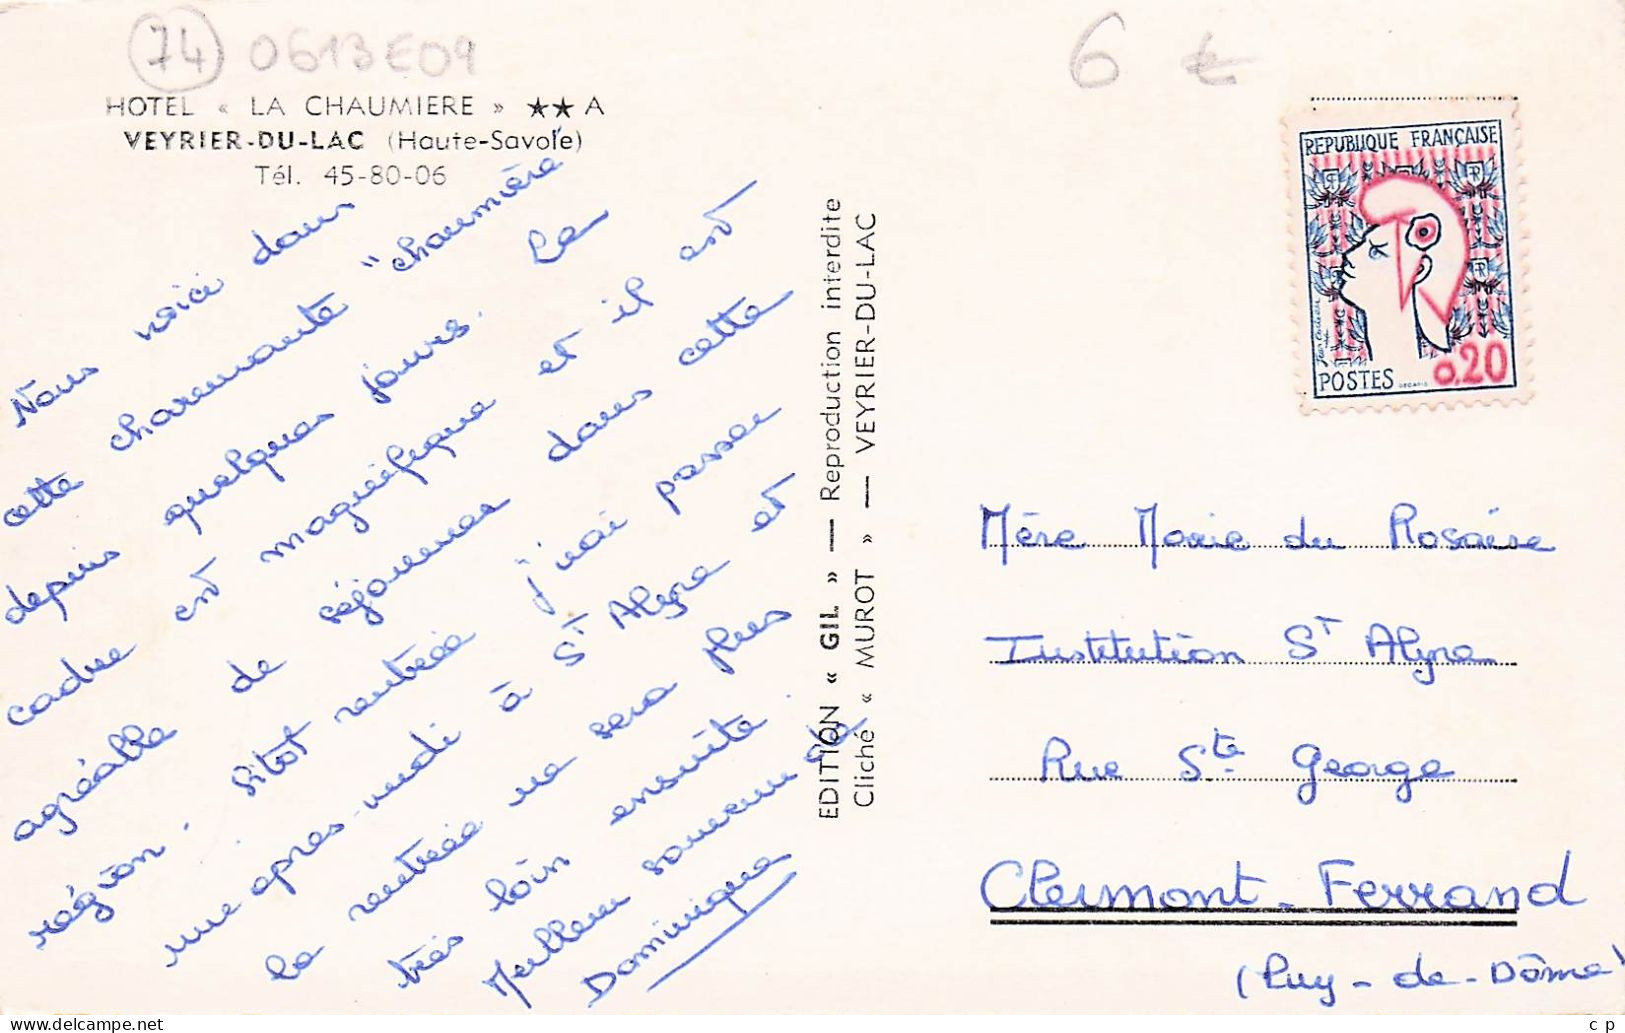 74 0613E09
6 €
HOTEL « LA CHAUMIERE » ★★ A
VEYRIER-DU-LAC (Haute-Savoie)
Tél. 45-80-06
Nous voici dans
cette charmante "chaumière
depuis quelques jours. Le
cadre est magnifique et il est
agréable de séjourner dans cette
région. Sitôt rentrée j'irai passer
une après-midi à St Alyre et
la rentrée ne sera plus
très loin ensuite.
Meilleur souvenir de
Dominique
EDITION « GIL » — Reproduction interdite
Cliché « MUROT » — VEYRIER-DU-LAC
REPUBLIQUE FRANÇAISE
POSTES
DECARIS
0.20
Mère Marie du Rosaire
Institution St Alyre
Rue Ste George
Clermont-Ferrand
(Puy-de-Dôme)
delcampe.net
c p